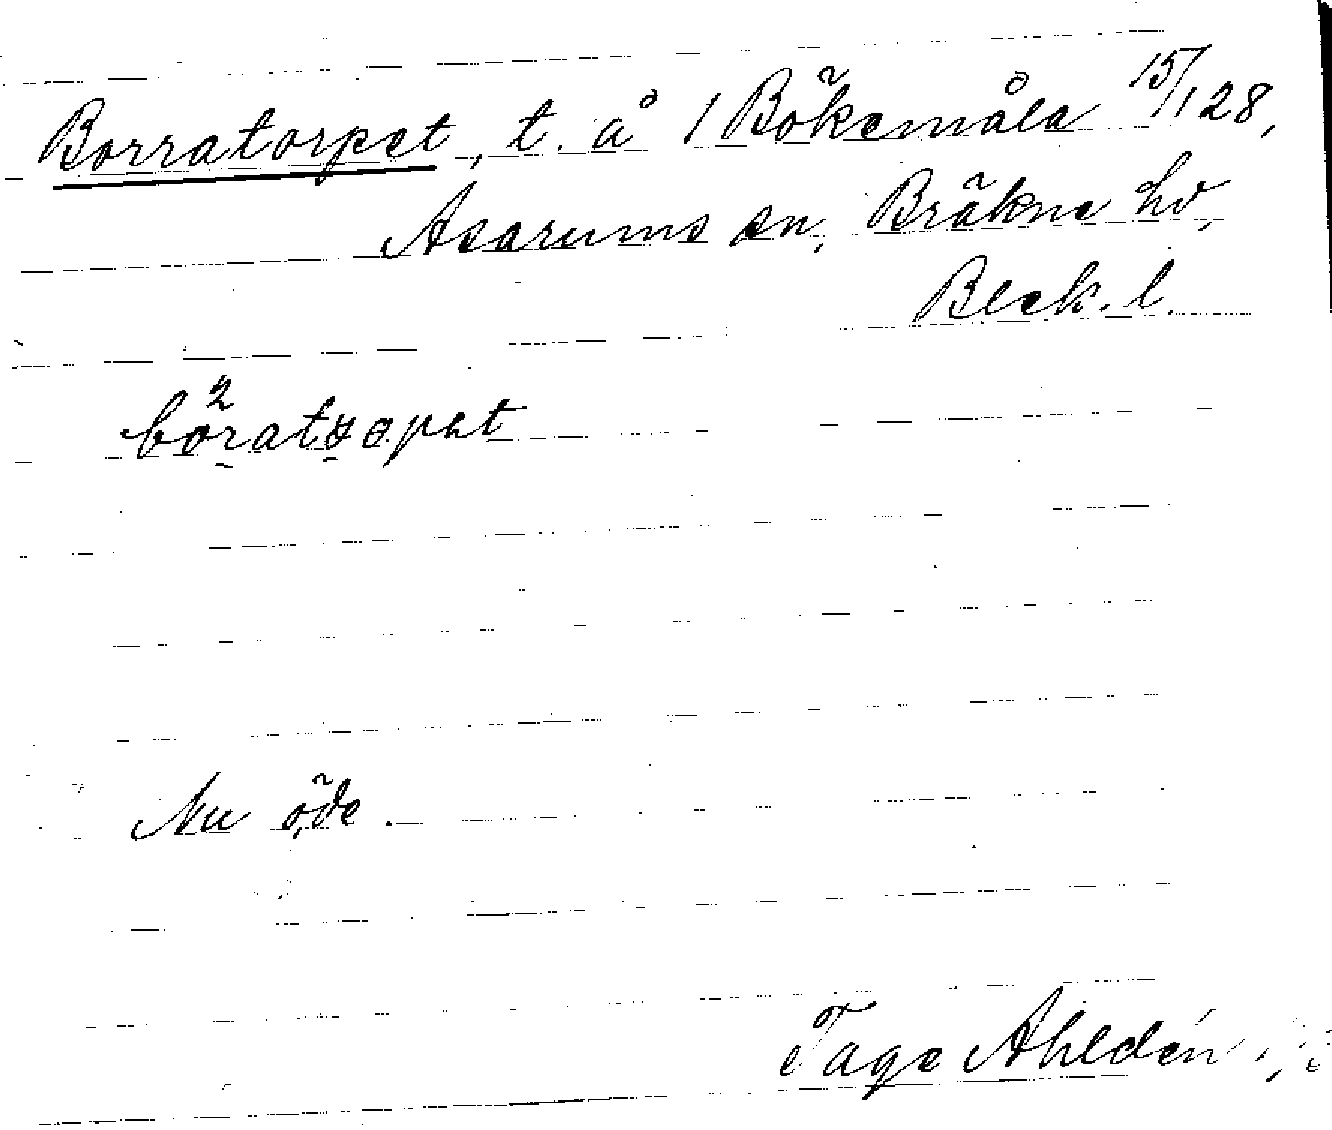 Borratorpet, t. å 1 Bökemåla 15/128,
Asarums sn, Bräkne hd,
Blek. l.
böratsopet
Nu öde.
Tage Ahldén